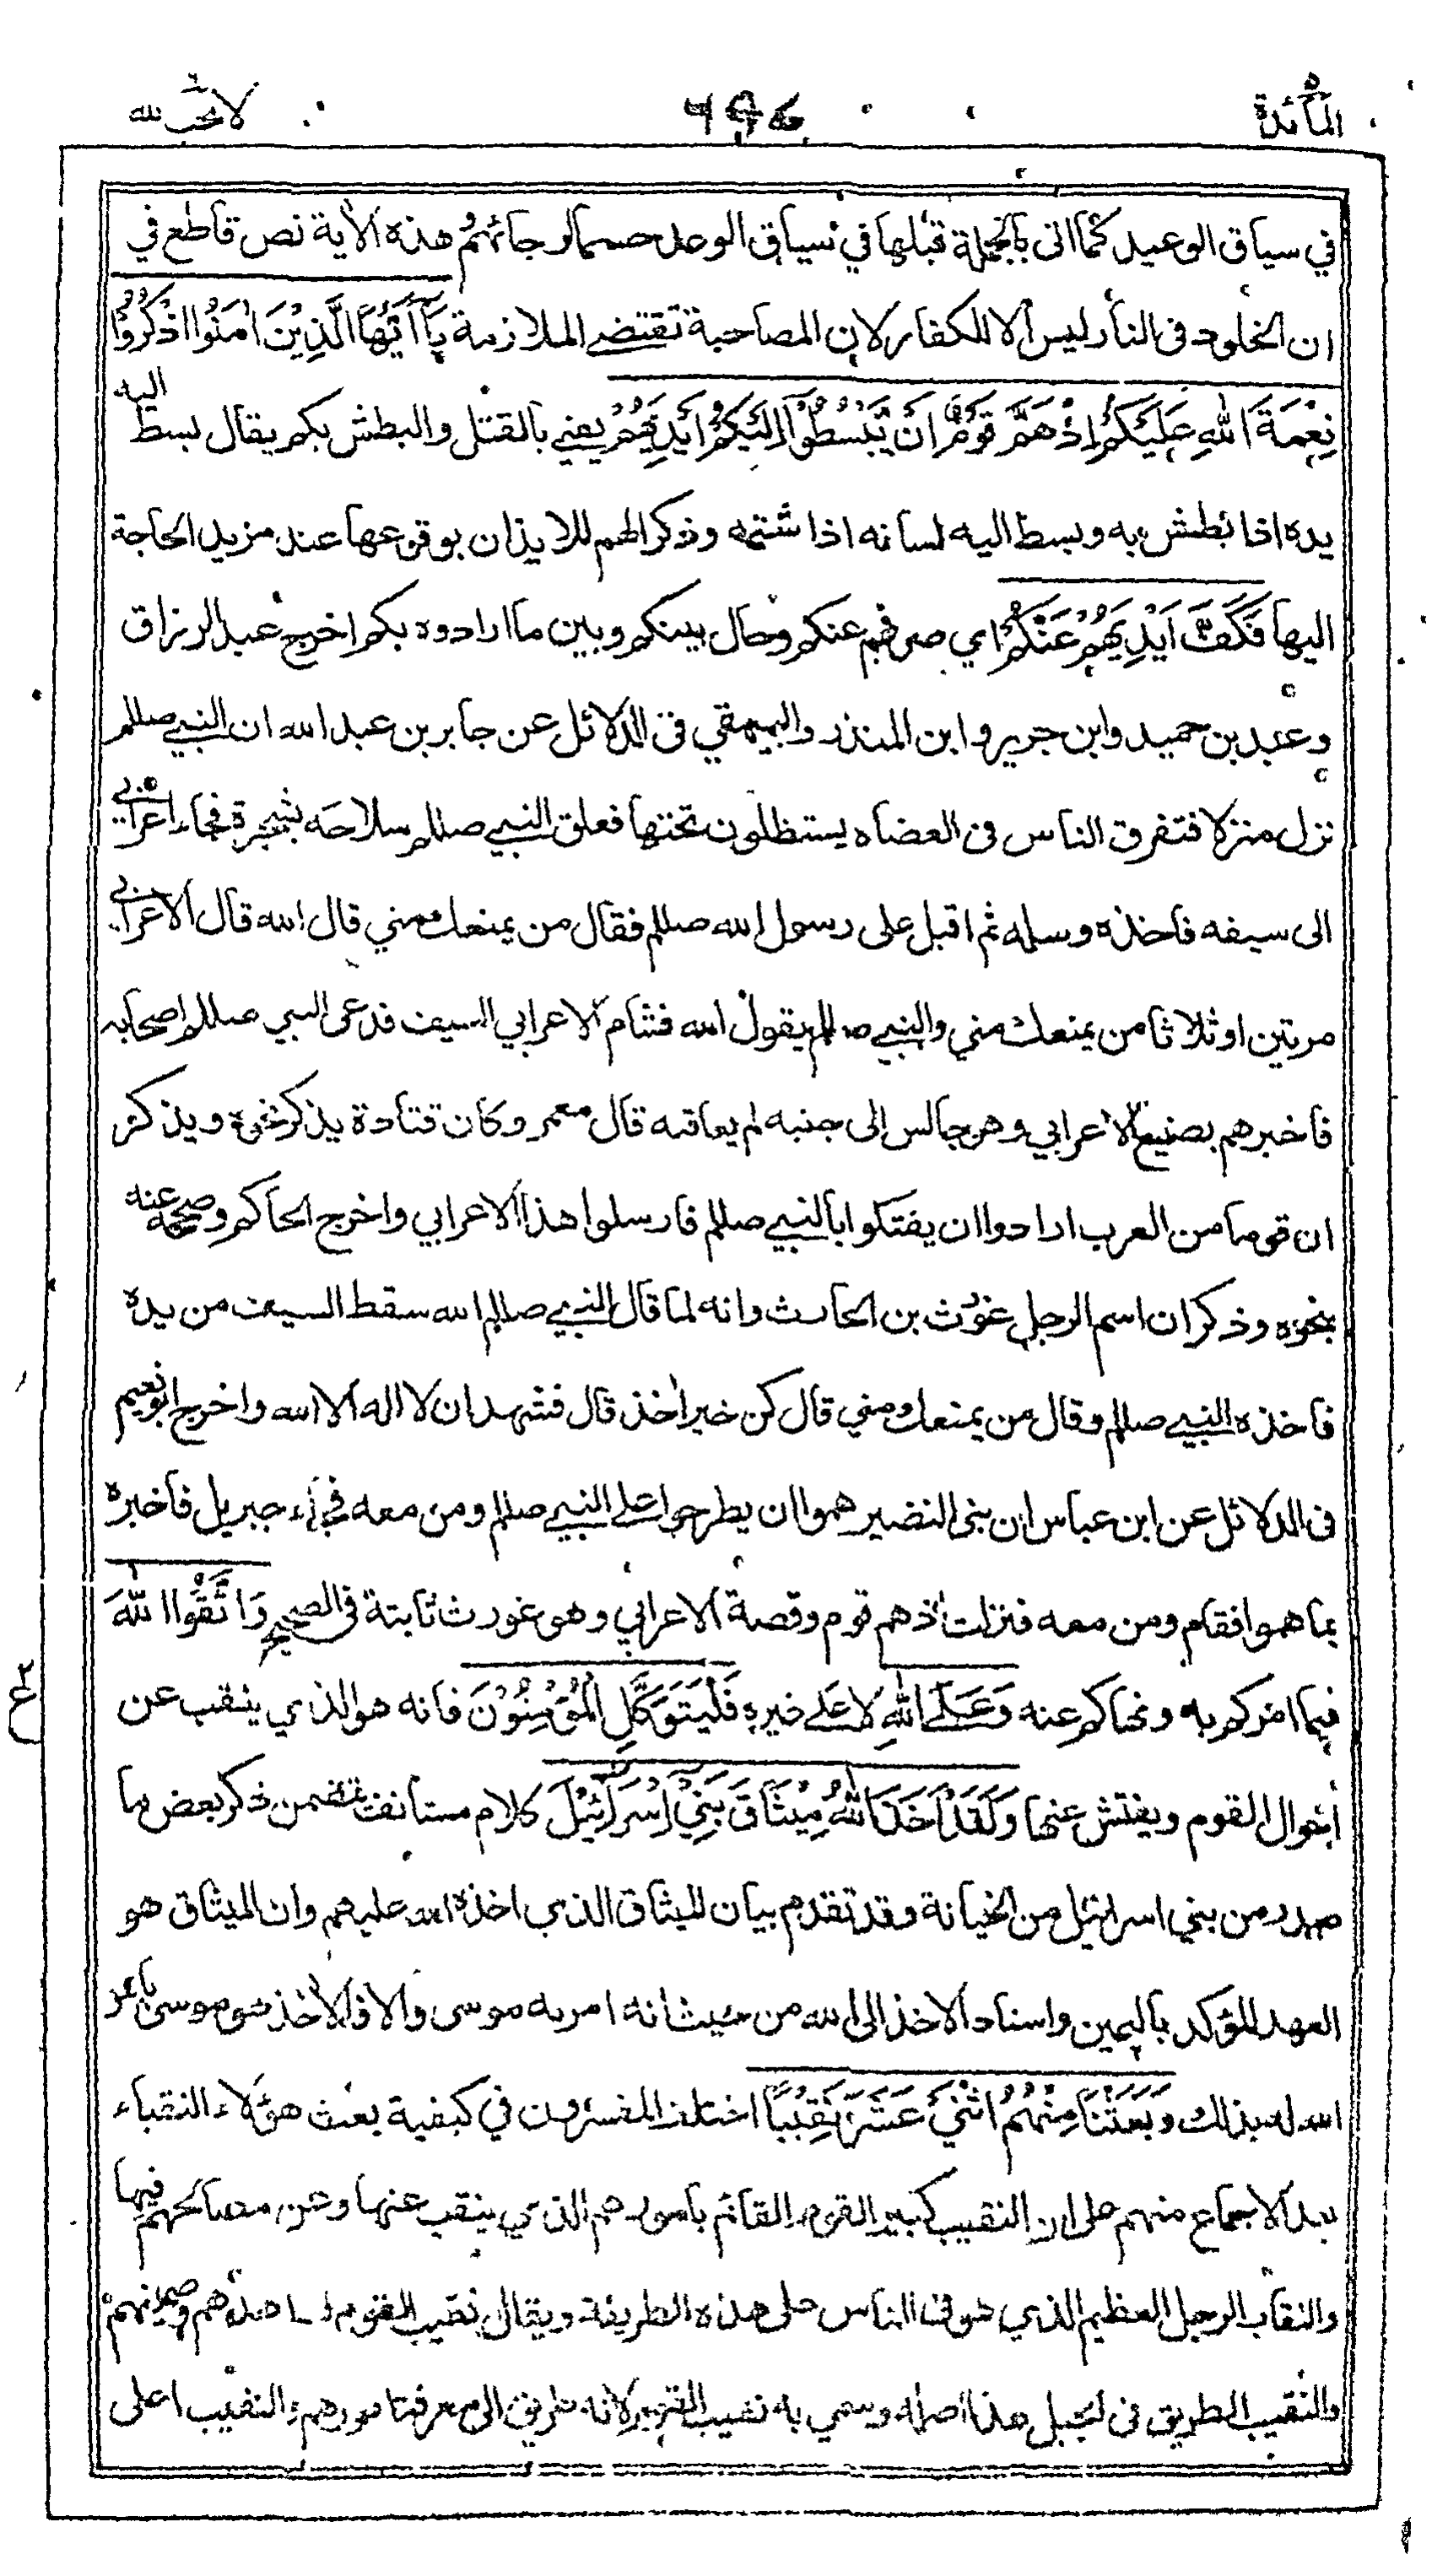 المائدة ٥
لا يحب الله ٦
في سياق الوعيد كما اتى بالجملة قبلها في سياق الوعد حسما لرجائهم وهذه الأية نص قاطع في
ان الخلود فى النار ليس الا للكفار لان المصاحبة تقتضي الملازمة يَآ اَيُّهَا الَّذِيْنَ اٰمَنُوا اذْكُرُوْا
نِعْمَةَ اللهِ عَلَيْكُمْ اِذْ هَمَّ قَوْمٌ اَنْ يَّبْسُطُوْا اِلَيْكُمْ اَيْدِيَهُمْ يعني بالقتل والبطش بكم يقال بسط اليه
يده اذا بطش به وبسط اليه لسانه اذا شتمه وذكر الهم للايذان بوقوعها عند مزيد الحاجة
اليها فَكَفَّ اَيْدِيَهُمْ عَنْكُمْ اي صرفهم عنكم وحال بينكم وبين ما ارادوه بكم اخرج عبد الرزاق
وعبد بن حميد وابن جرير وابن المنذر والبيهقي فى الدلائل عن جابر بن عبد الله ان النبي صللم
نزل منزلا فتفرق الناس فى العضاه يستظلون تحتها فعلق النبي صللم سلاحه بشجرة فجاء اعرابي
الى سيفه فاخذه وسله ثم اقبل على رسول الله صللم فقال من يمنعك مني قال الله قال الاعرابي
مرتين او ثلاثا من يمنعك مني والنبي صللم يقول الله فشام الاعرابي السيف فدعى النبي صللم اصحابه
فاخبرهم بصنيع الاعرابي وهو جالس الى جنبه لم يعاقبه قال معمر وكان قتادة يذكر نحوه ويذكر
ان قوما من العرب ارادوا ان يفتكوا بالنبي صللم فارسلوا هذا الاعرابي واخرج الحاكم وصححه عنه
بنحوه وذكر ان اسم الرجل غورث بن الحارث وانه لما قال النبي صللم الله سقط السيف من يده
فاخذه النبي صللم وقال من يمنعك مني قال كن خير اخذ قال فشهد ان لا اله الا الله واخرج ابو نعيم
فى الدلائل عن ابن عباس ان بنى النضير هموا ان يطرحوا على النبي صللم ومن معه فجاء جبريل فاخبره
بما هموا فقام ومن معه فنزلت اذ هم قوم وقصة الاعرابي وهو غورث ثابتة فى الصحيح وَاتَّقُوا اللهَ
فيما امركم به ونهاكم عنه وَعَلَى اللهِ لا على غيره فَلْيَتَوَكَّلِ الْمُؤْمِنُوْنَ فانه هو الذي ينقب عن
احوال القوم ويفتش عنها وَلَقَدْ اَخَذَ اللهُ مِيْثَاقَ بَنِيْ اِسْرَآئِيْلَ كلام مستانف يتضمن ذكر بعض ما
صدر من بني اسرائيل من الخيانة وقد تقدم بيان الميثاق الذي اخذه الله عليهم وان الميثاق هو
العهد المؤكد باليمين واسناد الاخذ الى الله من حيث انه امر به موسى والا فالاخذ هو موسى بامر
الله له بذلك وَبَعَثْنَا مِنْهُمُ اثْنَيْ عَشَرَ نَقِيْبًا اختلف المفسرون في كيفية بعث هؤلاء النقباء
بعد الاجماع منهم على ان النقيب كبير القوم القائم بامورهم الذي ينقب عنها وعن مصالحهم فيها
والنقاب الرجل العظيم الذي هو فى الناس على هذه الطريقة ويقال نقيب القوم لـ شاهدهم وضمينهم
والنقيب الطريق فى الجبل هذا اصله وسمي به نقيب القوم لانه طريق الى معرفة امورهم والنقيب اعلى
ع